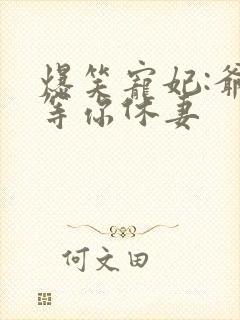 爆笑寵妃:爺
等你休妻
何文田